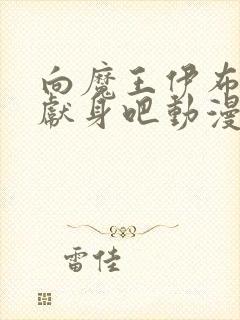 向魔王伊布
獻身吧動漫
雷佳